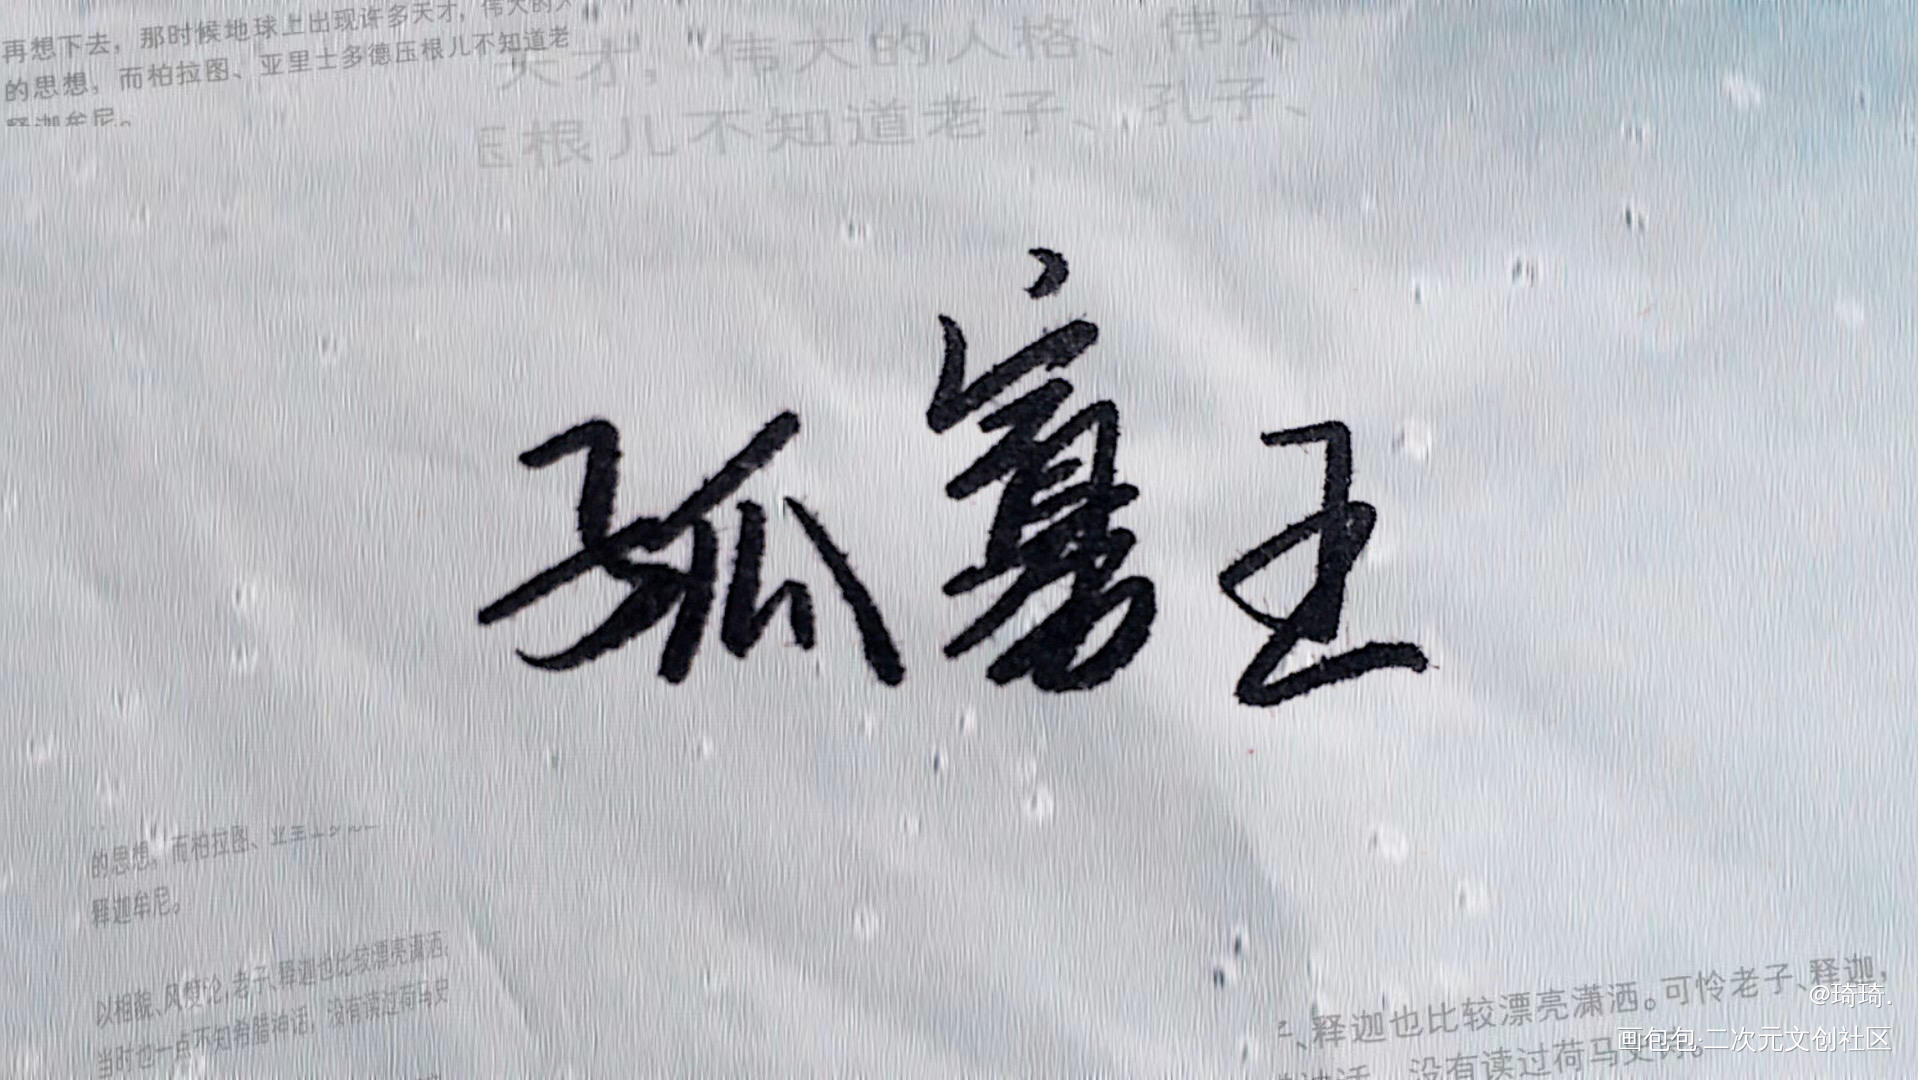 再想下去，那时候地球上出现许多天才，伟大的人
的思想，而柏拉图、亚里士多德压根儿不知道老
释迦牟尼。
天才，伟大的人格、伟大
压根儿不知道老子、孔子、
孤寡王
的思想，而柏拉图、亚里士多
释迦牟尼。
以相貌、风度论，老子、释迦也比较漂亮潇洒
当时也一点不知希腊神话，没有读过荷马史
、释迦也比较漂亮潇洒。可怜老子、释迦，
神话，没有读过荷马史诗。
@琦琦.
画包包·二次元文创社区